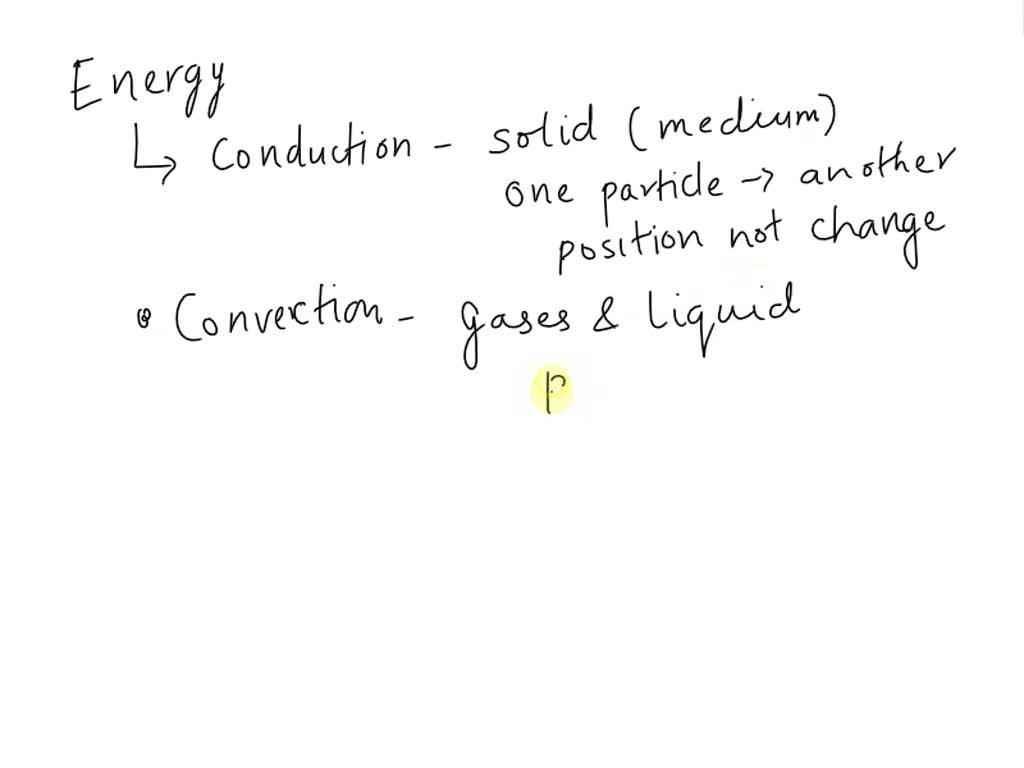 Energy
↳ Conduction - solid (medium)
one particle → another
position not change
• Convection - gases & liquid
P